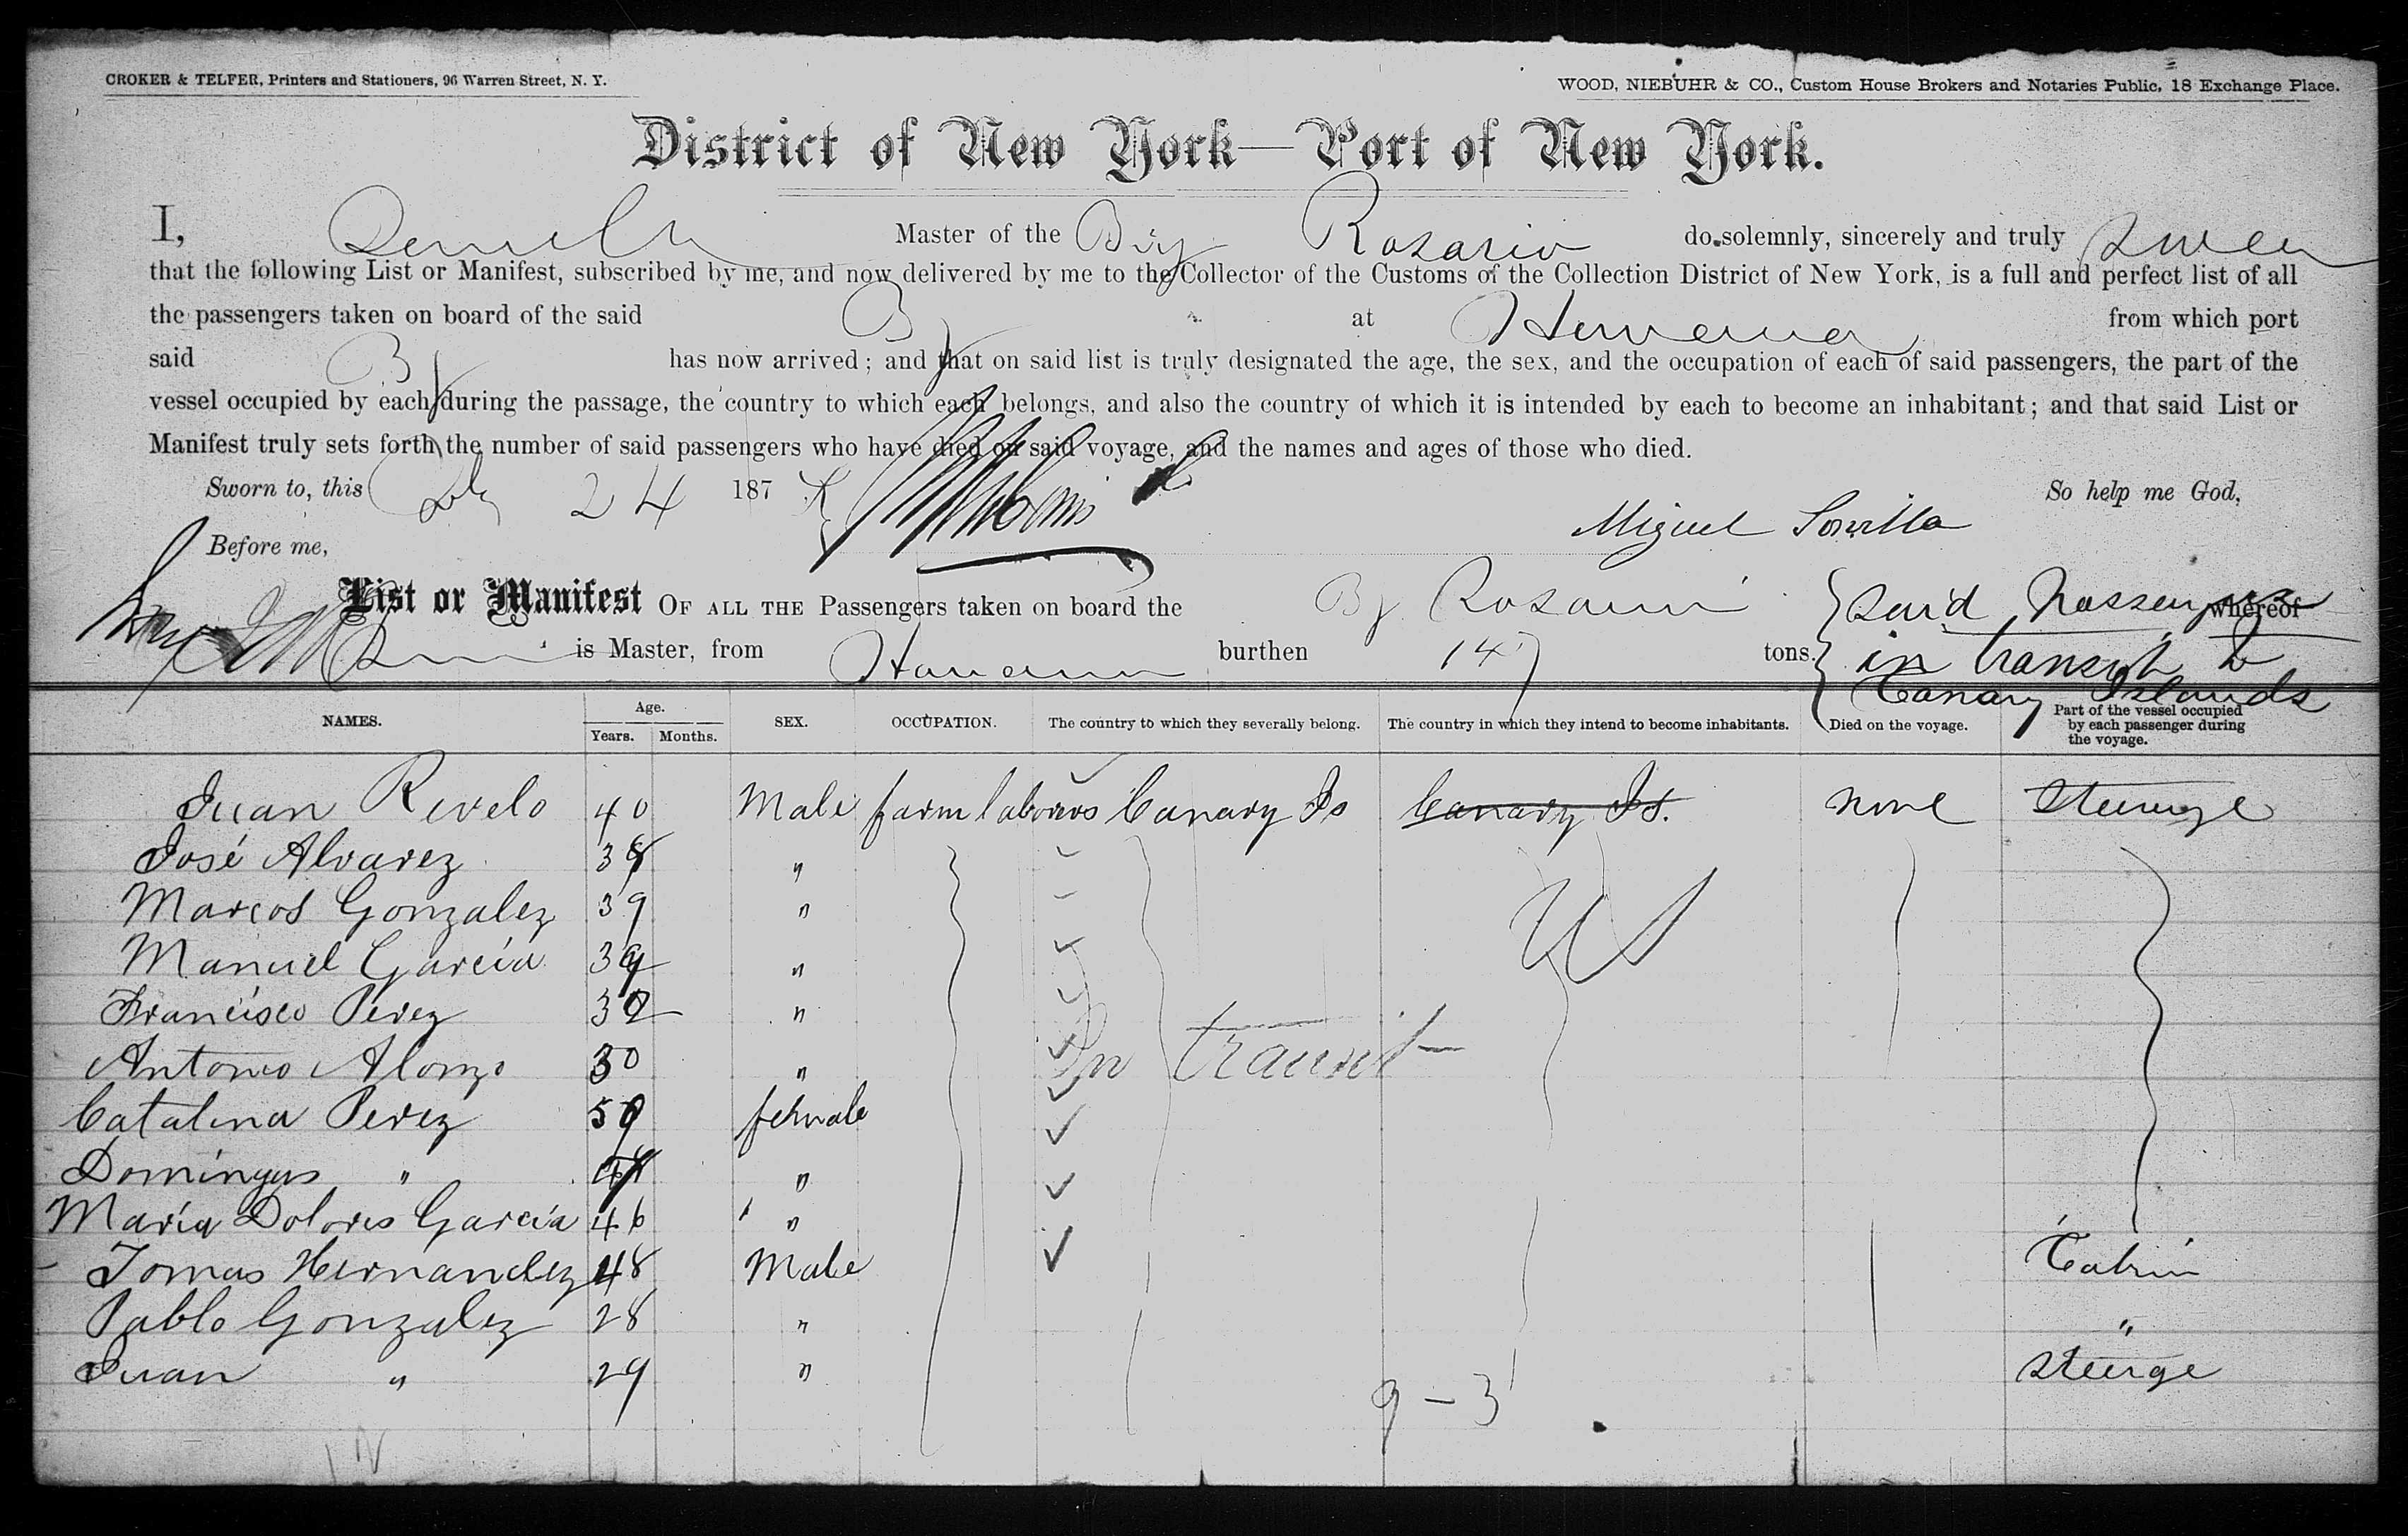 CROKER & TELFER, Printers and Stationers, 96 Warren Street, N. Y.
WOOD, NIEBUHR & CO., Custom House Brokers and Notaries Public, 18 Exchange Place.
District of New York—Port of New York.
I, Master of the Brig Rosario do solemnly, sincerely and truly swear
that the following List or Manifest, subscribed by me, and now delivered by me to the Collector of the Customs of the Collection District of New York, is a full and perfect list of all
the passengers taken on board of the said at Havana from which port
said has now arrived; and that on said list is truly designated the age, the sex, and the occupation of each of said passengers, the part of the
vessel occupied by each during the passage, the country to which each belongs, and also the country of which it is intended by each to become an inhabitant; and that said List or
Manifest truly sets forth the number of said passengers who have died on said voyage, and the names and ages of those who died.
Sworn to, this July 24 187 So help me God,
Miguel
Before me,
List or Manifest OF ALL THE Passengers taken on board the Bg Rosario whereof
said Passengers
is Master, from Havana burthen 147 tons.
in transit to
Canary Islands
NAMES. Age. Years. Months. SEX. OCCUPATION. The country to which they severally belong. The country in which they intend to become inhabitants. Died on the voyage. Part of the vessel occupied by each passenger during the voyage.
Juan Revelo 40 Male farm laborers Canary Is Canary Is. none Steerage
José Alvarez 38 "
Marcos Gonzalez 39 " US
Manuel Garcia 39 "
Francisco Perez 32 "
Antonio Alonzo 30 " In transit
Catalina Perez 59 female
Domingas " "
Maria Dolores Garcia 46 "
Tomas Hernandez 48 Male Cabin
Pablo Gonzalez 28 " "
Juan " 29 " Steerge
9 - 3